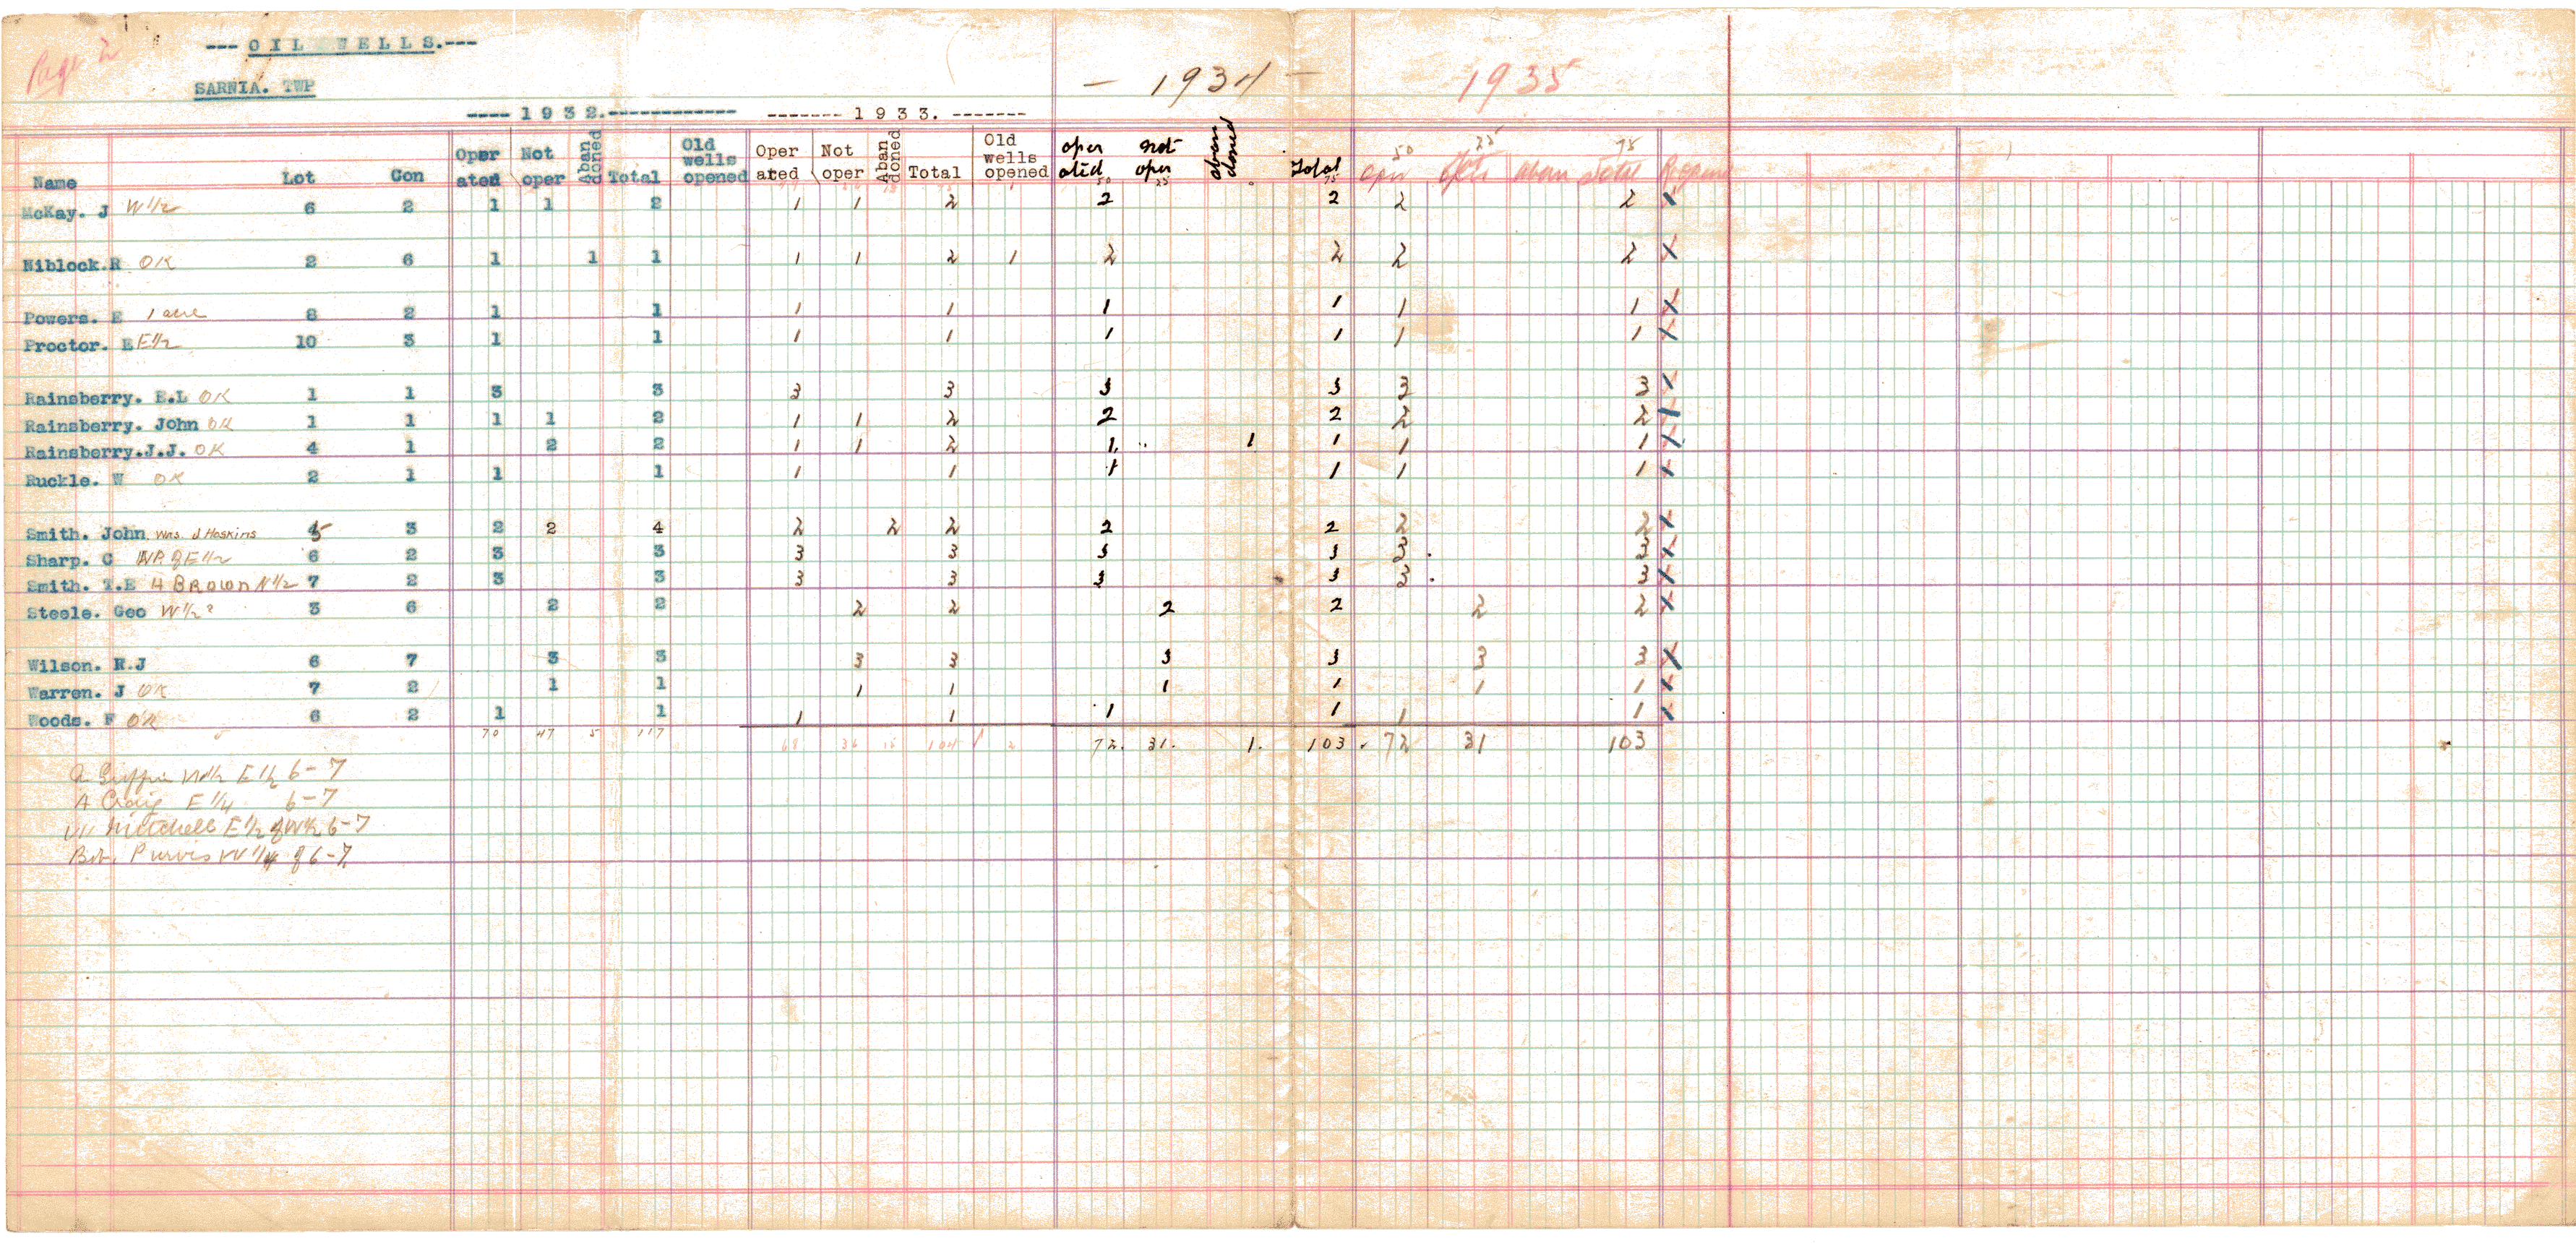 Page 2
--- OIL WELLS.---
SARNIA. TWP
---- 1 9 3 2.----------- ------- 1 9 3 3. ------- — 1934 — 1935
Name Lot Con Oper ated Not oper Aban doned Total Old wells opened Oper ated Not oper Aban doned Total Old wells opened oper ated not oper aban doned Total oper aban Total
50 25 75 50 25 75
McKay. J W 1/2 6 2 1 1 2 1 1 2 2 2 2 2 X
Niblock.R OK 2 6 1 1 1 1 1 2 1 2 2 2 2 X
Powers. E 1 acre 8 2 1 1 1 1 1 1 1 1 X
Proctor. E E 1/2 10 3 1 1 1 1 1 1 1 1 X
Rainsberry. E.L OK 1 1 3 3 3 3 3 3 3 3 X
Rainsberry. John OK 1 1 1 1 2 1 1 2 2 2 2 2 X
Rainsberry.J.J. OK 4 1 2 2 1 1 2 1 1 1 1 1 X
Ruckle. W OK 2 1 1 1 1 1 1 1 1 1 X
Smith. John was J Hoskins 5 3 2 2 4 2 2 2 2 2 2 2 X
Sharp. C of E 1/2 6 2 3 3 3 3 3 3 3 3 X
Smith. T.E H BROWN N 1/2 7 2 3 3 3 3 3 3 3 3 X
Steele. Geo W 1/2 ? 3 6 2 2 2 2 2 2 2 2 X
Wilson. R.J 6 7 3 3 3 3 3 3 3 3 X
Warren. J OK 7 2 1 1 1 1 1 1 1 1 X
Woods. F OK 6 2 1 1 1 1 1 1 1 1 X
70 47 5 117 68 36 104 2 72. 31. 1. 103. 72 31 103
E 1/2 6-7
A Craig E 1/4 6-7
Mitchell E 1/2 of W 1/2 6-7
Bob. Purvis W 1/4 of 6-7